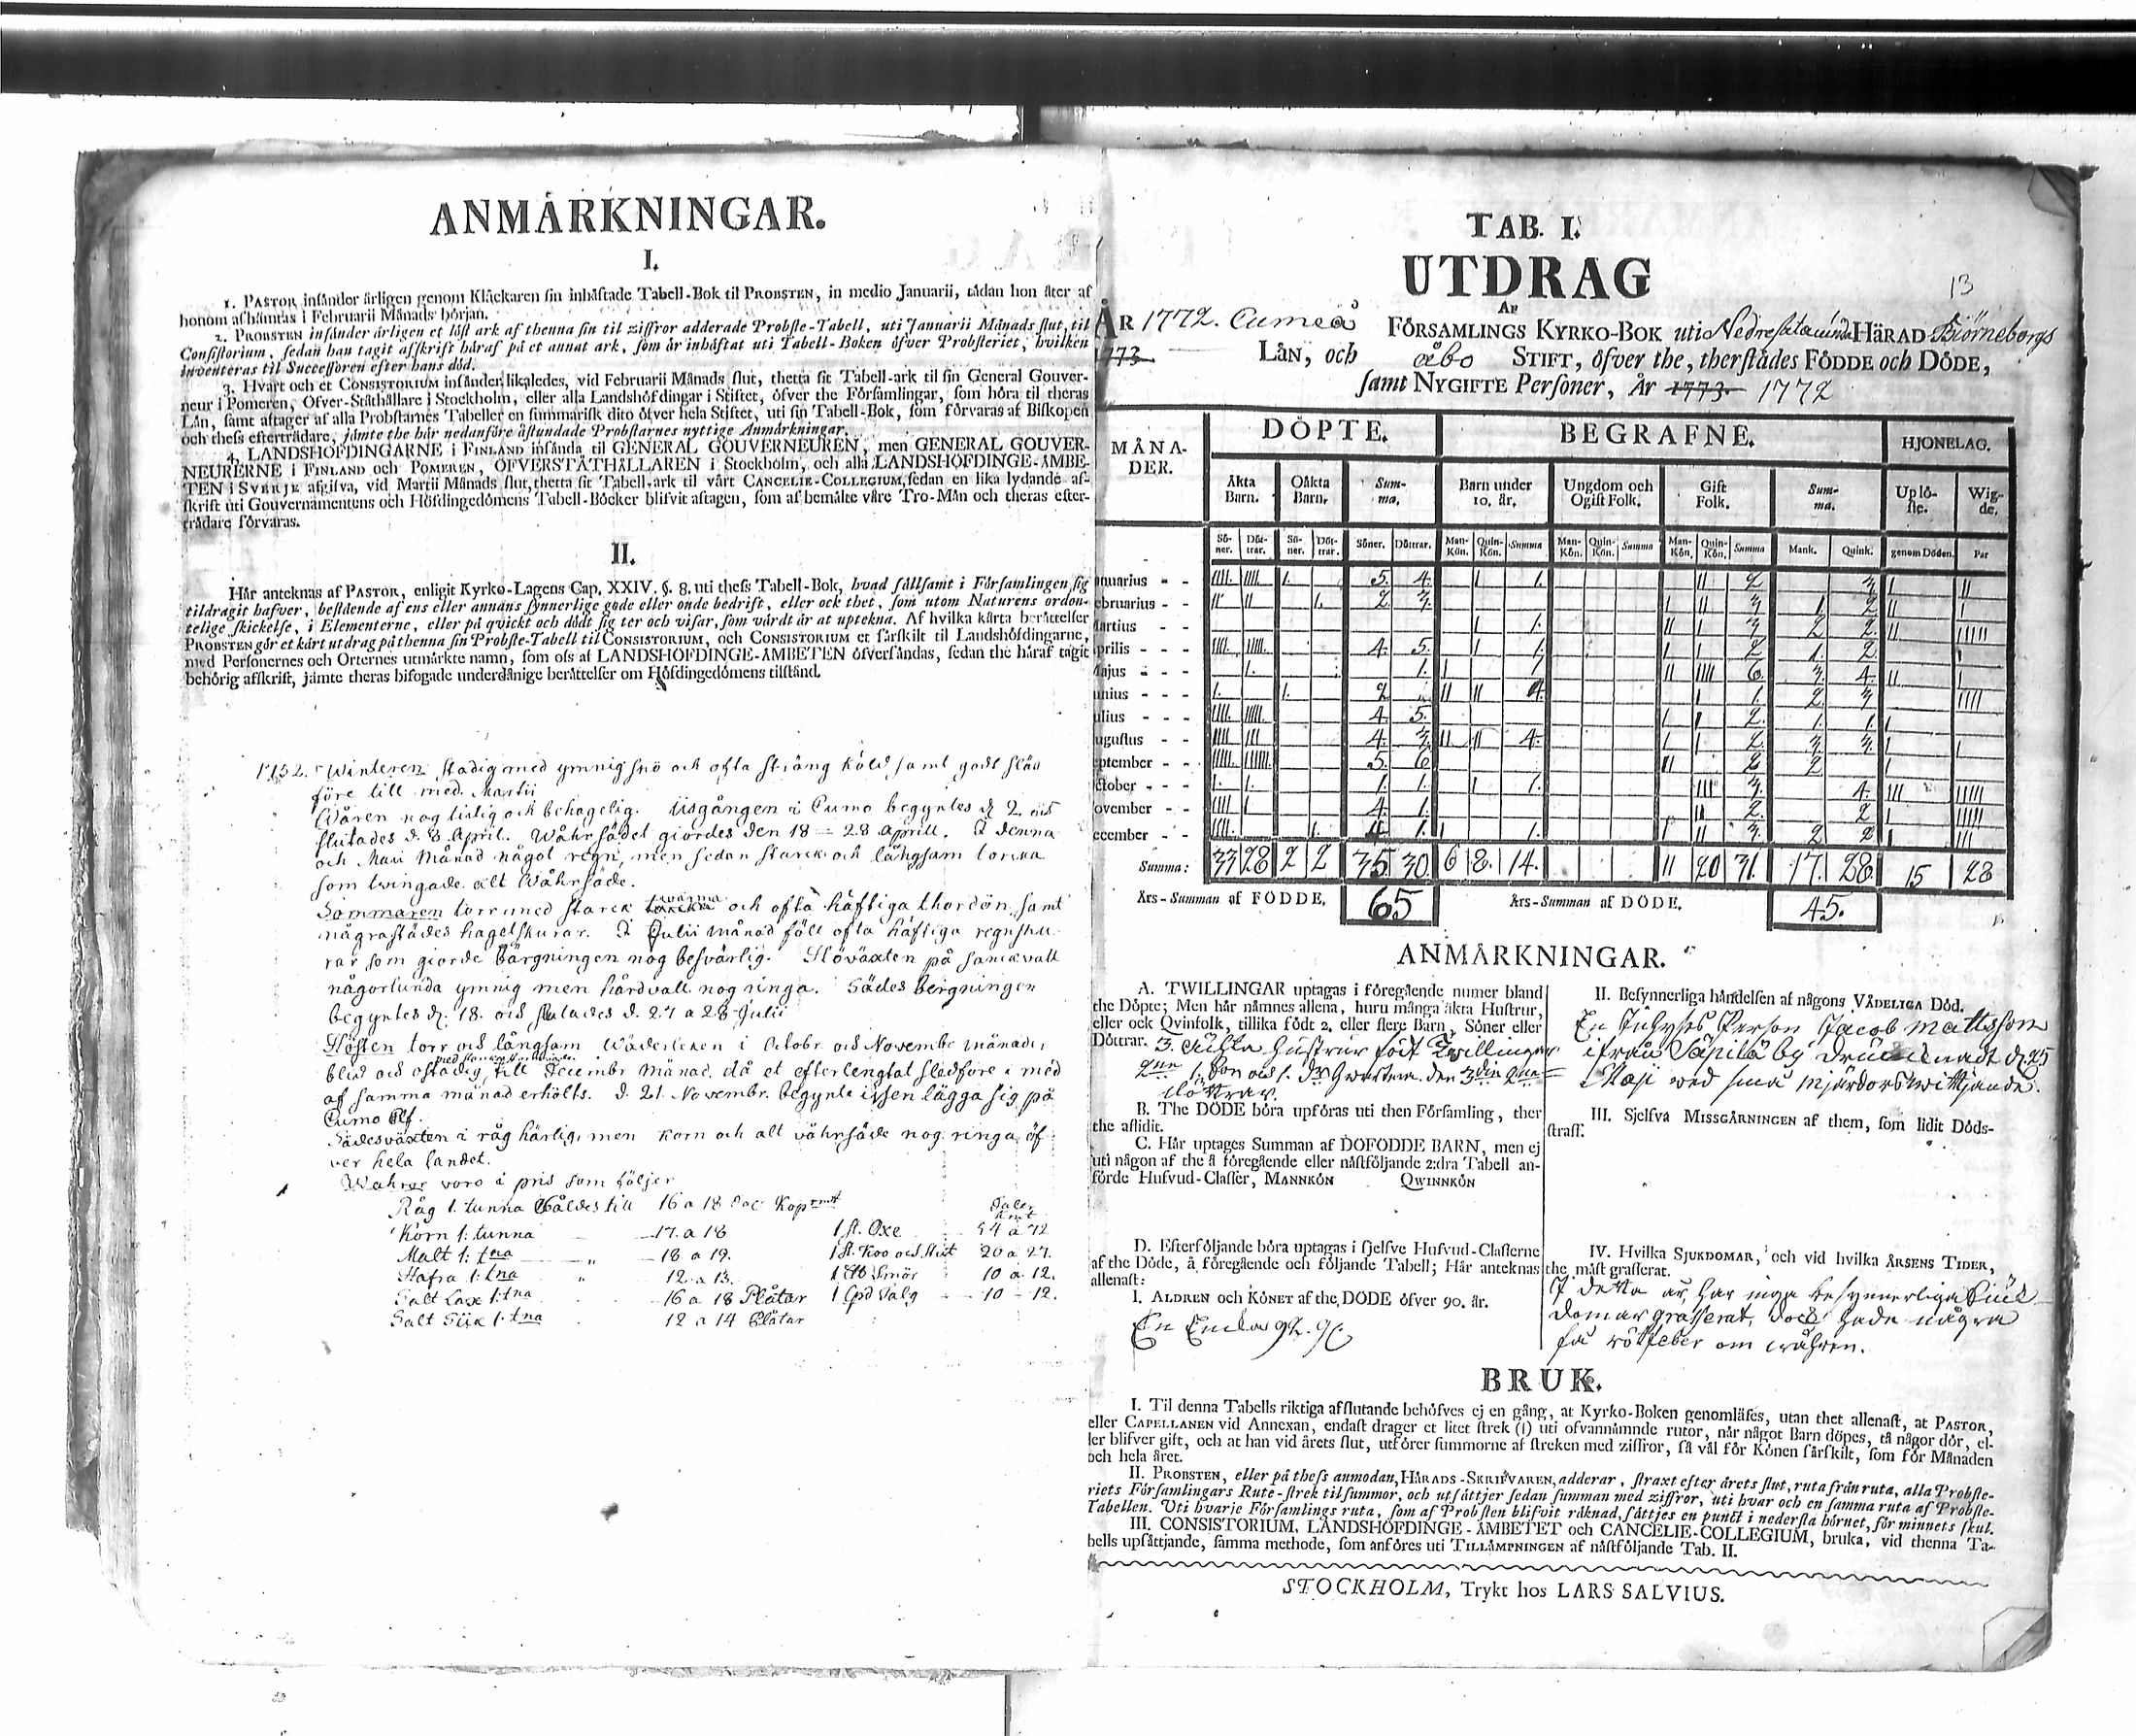 ANMÄRKNINGAR.
I.
1. PASTOR insänder årligen genom Klåckaren sin inhäftade Tabell-Bok til PROBSTEN, in medio Januarii, tådan hon åter af
honom afhämtas i Februarii Månads början.
2. PROBSTEN insänder årligen et löst ark af thenna sin til ziffror adderade Probste-Tabell, uti Januarii Månads slut, til
Consistorium, sedan han tagit afskrift häraf på et annat ark, som är inhäftat uti Tabell-Boken öfver Probsteriet, hvilken
inventeras til Successoren efter hans död.
3. Hvart och et CONSISTORIUM insänder likaledes, vid Februarii Månads slut, thetta sit Tabell-ark til sin General Gouver-
neur i Pomeren, Öfver-Ståthållare i Stockholm, eller alla Landshöfdingar i Stiftet, öfver the Församlingar, som höra til theras
Län, samt aftager af alla Probstarnes Tabeller en summarisk dito öfver hela Stiftet, uti sin Tabell-Bok, som förvaras af Biskopen
och thess efterträdare, jämte the här nedanföre åstundade Probstarnes nyttige Anmärkningar.
4. LANDSHÖFDINGARNE i FINLAND insända til GENERAL GOUVERNEUREN, men GENERAL GOUVER-
NEURERNE i FINLAND och POMEREN, ÖFVERSTÅTHÅLLAREN i Stockholm, och alla LANDSHÖFDINGE-ÄMBE-
TEN i SVERJE afgifva, vid Martii Månads slut, thetta sit Tabell-ark til vårt CANCELIE-COLLEGIUM, sedan en lika lydande af-
skrift uti Gouvernämentens och Höfdingedömens Tabell-Böcker blifvit aftagen, som af bemälte våre Tro-Män och theras efter-
trädare förvaras.
II.
Här anteknas af PASTOR, enligit Kyrko-Lagens Cap. XXIV. §. 8. uti thess Tabell-Bok, hvad sällsamt i Församlingen sig
tildragit hafver, bestående af ens eller annans synnerlige gode eller onde bedrift, eller ock thet, som utom Naturens ordon-
telige skickelse, i Elementerne, eller på qvickt och dödt sig ter och visar, som värdt är at uptekna. Af hvilka kårta berättelser
PROBSTEN gör et kårt utdrag på thenna sin Probste-Tabell til CONSISTORIUM, och CONSISTORIUM et särskilt til Landshöfdingarne,
med Personernes och Orternes utmärkte namn, som oss af LANDSHÖFDINGE-ÄMBETEN öfversändas, sedan the häraf tagit
behörig afskrift, jämte theras bifogade underdånige berättelser om Höfdingedömens tilstånd.
Winteren stadig med ymnig snö och ofta sträng köld samt godt släd
före till med. Martii
Wåren nog tidig och behagelig. Iisgången i Cumo begyntes d. 2 och
slutades d. 8 April. Wåhrsädet giordes den 18 = 28 Aprill. I denna
och Maii Månad något regn, men sedan starck och långsam torcka
som twingade alt Wåhrsäde.
Sommaren torr med starck wärma och ofta häftiga thordön samt
någrastädes hagelskurar. I Julii månad föll ofta häftiga regnsku-
rar som giorde bärgningen nog besvärlig. Höväxten på sanckvall
någorlunda ymnig men hårdvall nog ringa. Sädes bergningen
begyntes d. 18. och slutades d. 27 a 28 Julii
Hösten torr och långsam Wäderleken i Octobr. och Novembr månader
blid och ostadig till Decembr månad. då et efterlengtat slädföre i med
af samma månad erhölts. d. 21. Novembr. begynte issen lägga sig på
Cumo Elf.
Sädesväxten i råg härlig, men korn och alt våhrsäde nog ringa öf
ver hela landet.
Wahror voro i pris som följer
Råg 1: tunna såldes till 16 a 18 Dal Kopmt Daler Kmt
Korn 1: tunna 17. a 18 1 st. Oxe 54 a 72
Malt 1: tna 18 a 19. 1 st. Koo och Stut 20 a 27.
Hafra 1: tna 12 a 13. 1 Smör 10 a 12.
Salt Lax 1: tna 16 a 18 Plåtar 1 Lpd Talg 10 - 12.
Salt Siik 1: tna 12 a 14 Plåtar
13
TAB. I.
UTDRAG
AF
ÅR 1772. Cumeå FÖRSAMLINGS KYRKO-BOK uti HÄRAD Björneborgs
1773 LÄN, och Åbo STIFT, öfver the, therstädes FÖDDE och DÖDE,
samt NYGIFTE Personer, År 1773 1772
MÅNA- DÖPTE. BEGRAFNE. HJONELAG.
DER. Äkta Barn. Oäkta Barn. Sum-ma. Barn under 10. år. Ungdom och Ogift Folk. Gift Folk. Sum-ma. Uplö-ste. Wig-de.
Sö-ner. Döt-trar. Sö-ner. Döt-trar. Söner. Döttrar. Man-Kön. Quin-Kön. Summa Man-Kön. Quin-Kön. Summa Man-Kön. Quin-Kön. Summa Mank. Quink. genom Döden. Par
anuarius - - IIII. IIII. I. 5. 4. I 1. II 2 I II
ebruarius - - II II I. 2 3. I II 3 1. 2 II I
artius - - I 1. II I 3 2 2. II IIIII
prilis - - - IIII. IIIII. 4. 5. I 1 I I 2 1. 2 I
ajus - - - I. 1. I II IIII 6. 3. 4. II I
unius - - - I. I. 2 II II 4. I 1. 2 3 IIII
ulius - - - IIII. IIIII. 4. 5. I I 2. 1. 1. I
ugustus - - IIII III 4. 3. II II 4. I I 2. 3. 3. I I
eptember - - IIIII IIIIII 5. 6 II 2 2 I
ctober - - - I. I. 1. 1. I 1. III 3. 4. III IIIII
ovember - - IIII I 4. 1. II 2. 2 IIIII
ecember - - IIII. I. 1. I 1. I II 3. 2 2 I III
Summa: 33 28 2 2 35 30. 6 8. 14. 11 20 31. 17. 28. 15 28
Års-Summan af FÖDDE. 65 Års-Summan af DÖDE. 45.
ANMÄRKNINGAR.
A. TWILLINGAR uptagas i föregående numer bland
the Döpte; Men här nämnes allena, huru många äkta Hustrur,
eller ock Qvinfolk, tillika födt 2, eller flere Barn, Söner eller
Döttrar. 3. Hustrur födt Twillingar
döttrar.
B. The DÖDE böra upföras uti then Församling, ther
the aflidit.
C. Här uptages Summan af DÖFÖDDE BARN, men ej
uti någon af the å föregående eller nästföljande 2:dra Tabell an-
förde Hufvud-Classer, MANNKÖN QWINNKÖN
D. Efterföljande böra uptagas i sjelfve Hufvud-Classerne
af the Döde, å föregående och följande Tabell; Här anteknas
allenast:
I. ÅLDREN och KÖNET af the DÖDE öfver 90. år.
En Enka 92.
II. Besynnerliga händelsen af någons VÅDELIGA Död.
En Person Jacob Mattsson
ifrån by drunknadt d. 25
Maji wed små
III. Sjelfva MISSGÄRNINGEN af them, som lidit Döds-
straff.
IV. Hvilka SJUKDOMAR, och vid hvilka ÅRSENS TIDER,
the mäst grasserat.
I detta år har inga besynnerliga Siuk
domar grasserat, dock hade några
få rötfeber om wåhren.
BRUK.
I. Til denna Tabells riktiga afslutande behöfves ej en gång, at Kyrko-Boken genomläses, utan thet allenast, at PASTOR,
eller CAPELLANEN vid Annexan, endast drager et litet strek (I) uti ofvannämnde rutor, når något Barn döpes, tå någor dör, el-
ler blifver gift, och at han vid årets slut, utförer summorne af streken med ziffror, så väl för Könen särskilt, som för Månaden
och hela året.
II. PROBSTEN, eller på thess anmodan, HÄRADS-SKRIFVAREN, adderar, straxt efter årets slut, ruta från ruta, alla Probste-
riets Församlingars Rute-strek til summor, och utsättjer sedan summan med ziffror, uti hvar och en samma ruta af Probste-
Tabellen. Uti hvarje Församlings ruta, som af Probsten blifvit räknad, sättjes en punct i nedersta hörnet, för minnets skul.
III. CONSISTORIUM, LANDSHÖFDINGE-ÄMBETET och CANCELIE-COLLEGIUM, bruka, vid thenna Ta-
bells upsättjande, samma methode, som anföres uti TILLÄMPNINGEN af nästföljande Tab. II.
STOCKHOLM, Trykt hos LARS SALVIUS.